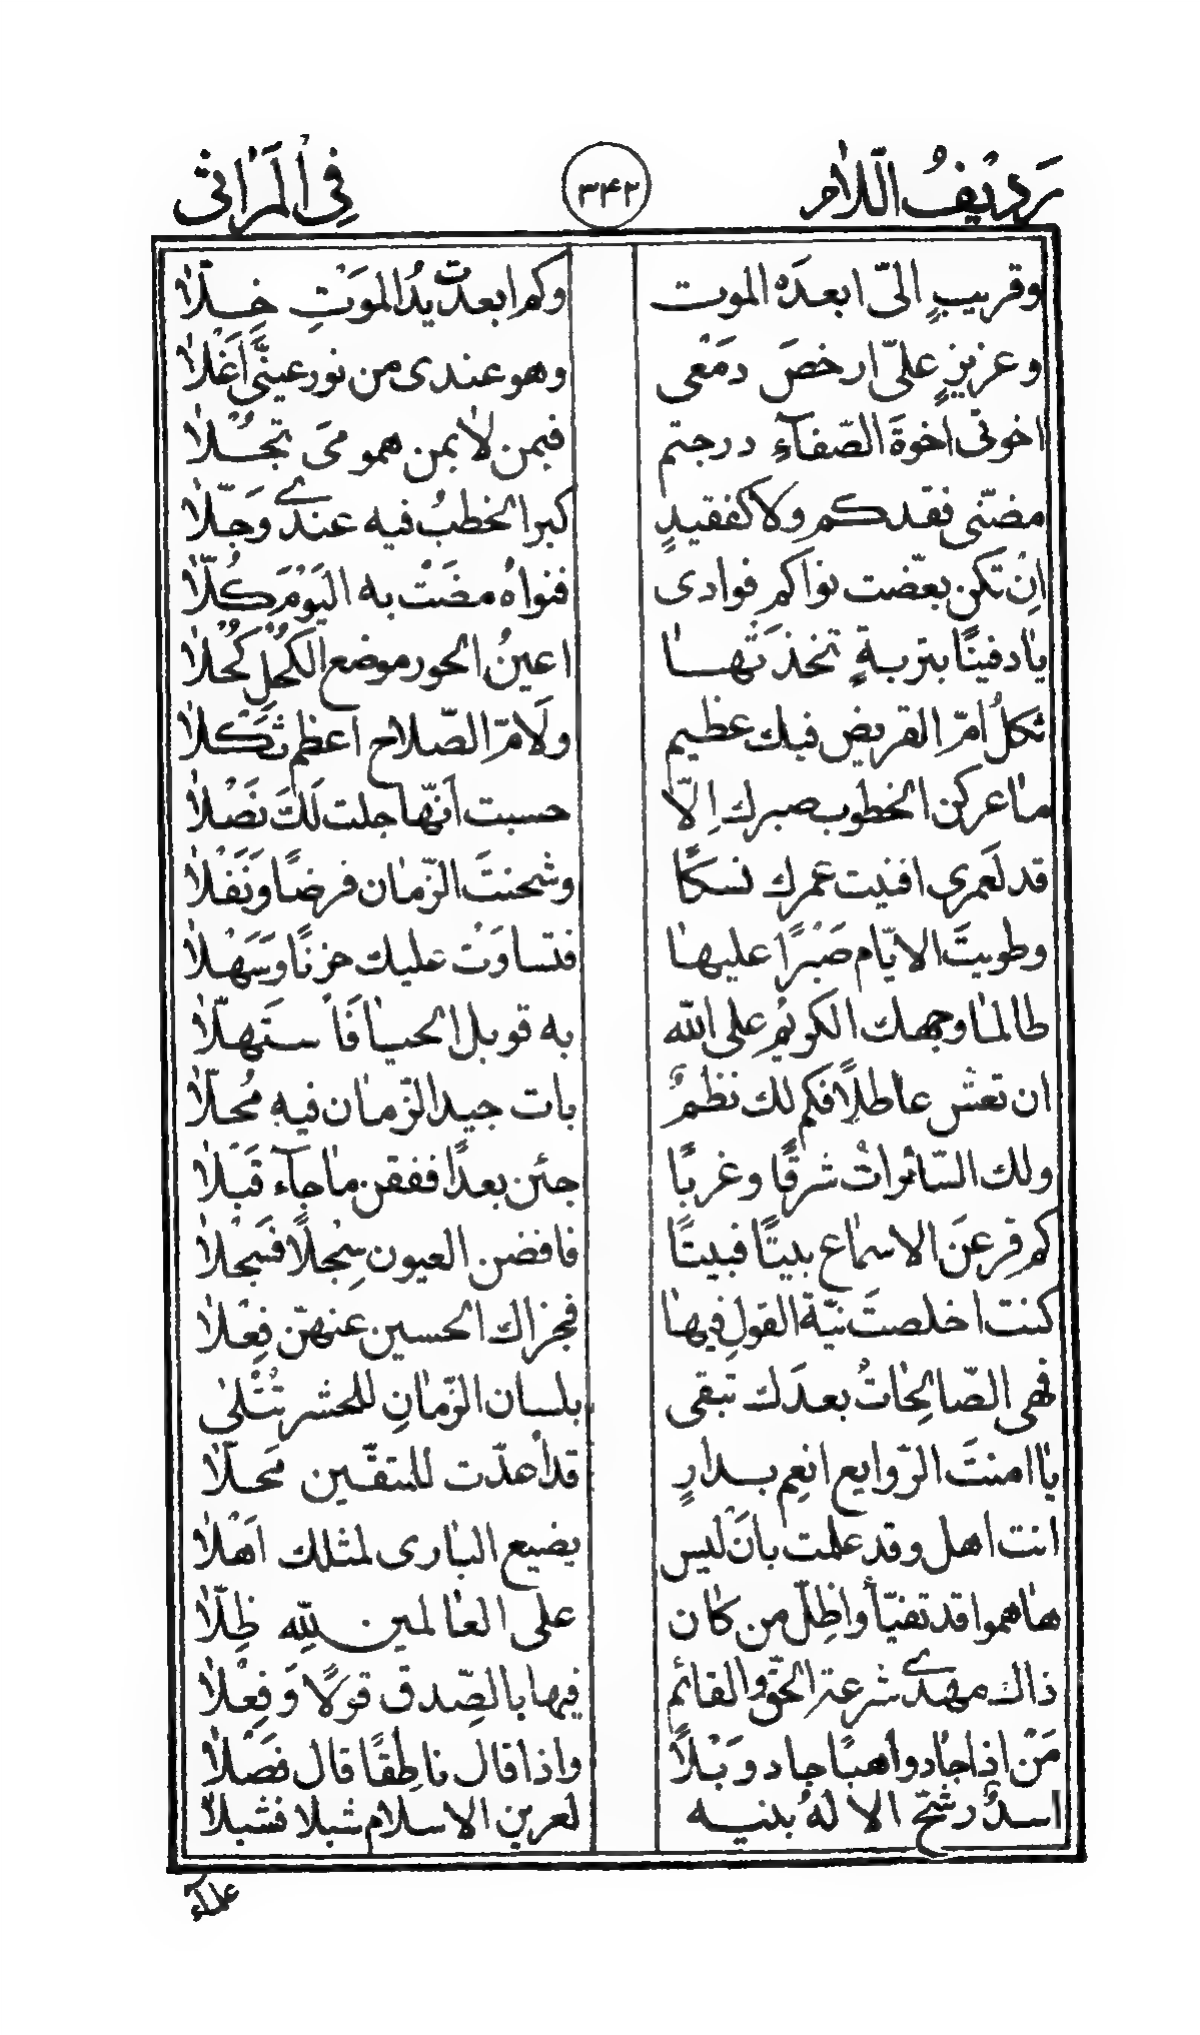 رَدِيْفُ اللّام ٣٤٢ فِى الْمَرٰاثى
وقريبٍ الىّ ابعدَه الموت وكم ابعدت يدُ الموَتِ خـلّاٰ
وعزيزٍ علىّ ارخصَ دمَعْى وهو عندى من نور عينىَّ اَغْلاٰ
اخوتى اخوةَ الصّفآءِ درجتم فبمن لاٰ بمن همو مىَ تجـُـلاٰ
مضّنى فقدكم ولا كفقيدٍ كبر الخطبُ فيه عندے وَجـلّاٰ
اِن تكن بعّضت نواكم فوادى فنواهُ مضَتْ به اليَوْمَ كُلّاٰ
ياٰ دفينًا بتربـةٍ تخذَتهـاٰ اعينُ الحور موضع الكُحْلِ كُحْلاٰ
ثكلُ اُمّ القريض فيك عظيم ولَامّ الصّلاح اعظم ثَكْلاٰ
ماٰ عركن الخطوب صبرك اِلّا حسبت اَنّها جلت لَكَ نَصْلاٰ
قد لَعمرى افنيت عمرك نسكًا وشحنتَ الزّمان فرضًا ونَفْلاٰ
وطويتَ الايّام صَبْرًا عليهاٰ فتساوَتْ عليك حزنًا وَسَهْلاٰ
طالماٰ وجهك الكريم على اللّه به قوبل الحياٰ فَاستَهلّاٰ
ان تعش عاطلًا فكم لك نظمٌ بات جيد الزّمان فيه مُحلّاٰ
ولك السّائراتُ شرقًا وغربًا جئن بعدًا ففقن ماٰ جآء قَبْلاٰ
كم قرعنَ الاسماٰع بيتًا فبيتًا فافضن العيون سِجْلًا فَسَجْلاٰ
كنت اخلصتَ نيّة القولِ فيهاٰ فجزاك الحسين عنهنّ فِعْلاٰ
فهى الصّالِحاتُ بعدَك تبقى بلسان الزّماٰنِ للحشر تُتْلىٰ
ياٰ امنتَ الرّوايع انعِم بـدارٍ قد اُهدّت للمتقّـين مَحلّاٰ
انت اهل وقد علمت بانْ ليس يضيع الباٰرى لمثلك اَهْلاٰ
هاٰ هموا قد تفيّأوا ظِلّ من كاٰن على العاٰلمين للّه ظِلّاٰ
ذاك مهدے شرعة الحقّ والقائم فيها بالصِّدق قولًا وَفِعْلاٰ
مَنْ اذا جاد واهبًا جاد وَبْلًا واذا قال ناطِقًا قال فصْلاٰ
اسدٌ رشّح الالهُ بنيـه لعرين الاسلام شبلا فشبلاً
علمآء